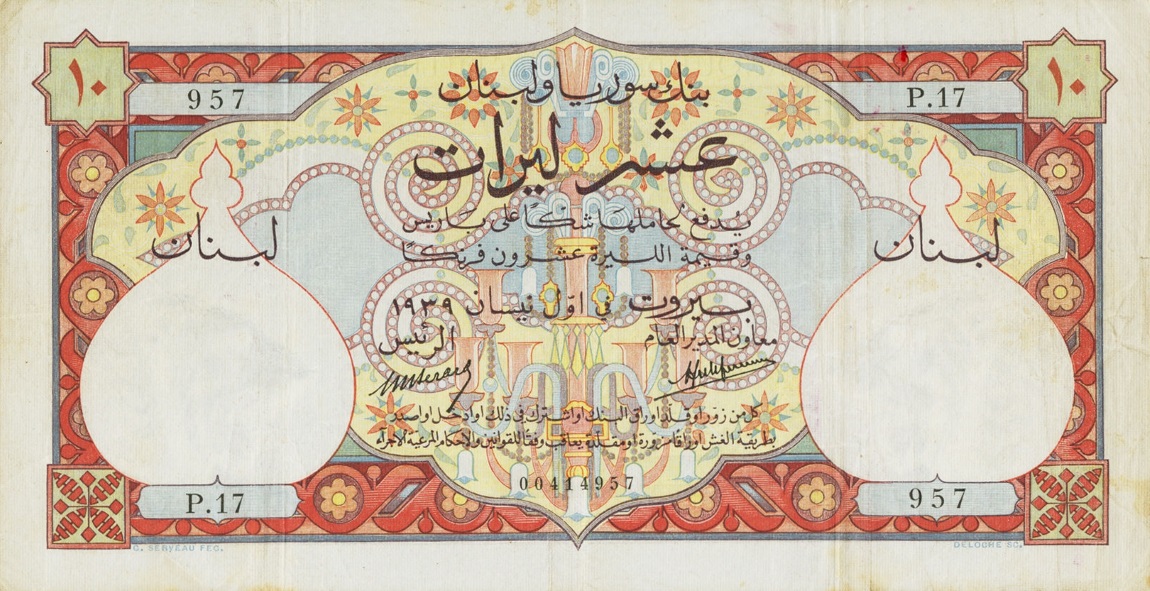 ١٠
١٠
957
P.17
بنك سوريا ولبنان
عشر ليرات
يُدفع لحاملها شكًا على باريس
وقيمة الليرة عشرون فرنكًا
لبنان
لبنان
بيروت في اوّل نيسان ١٩٣٩
معاون المدير العام
الرئيس
كل من زوّر او قلّد اوراق البنك او اشترك في ذلك او ادخل او اصدر
بطريقة الغش اوراقا مزورة او مقلّدة يعاقب وفقًا للقوانين والاحكام المرعية الاجراء
00414957
P.17
957
C. SERVEAU FEC.
DELOCHE SC.